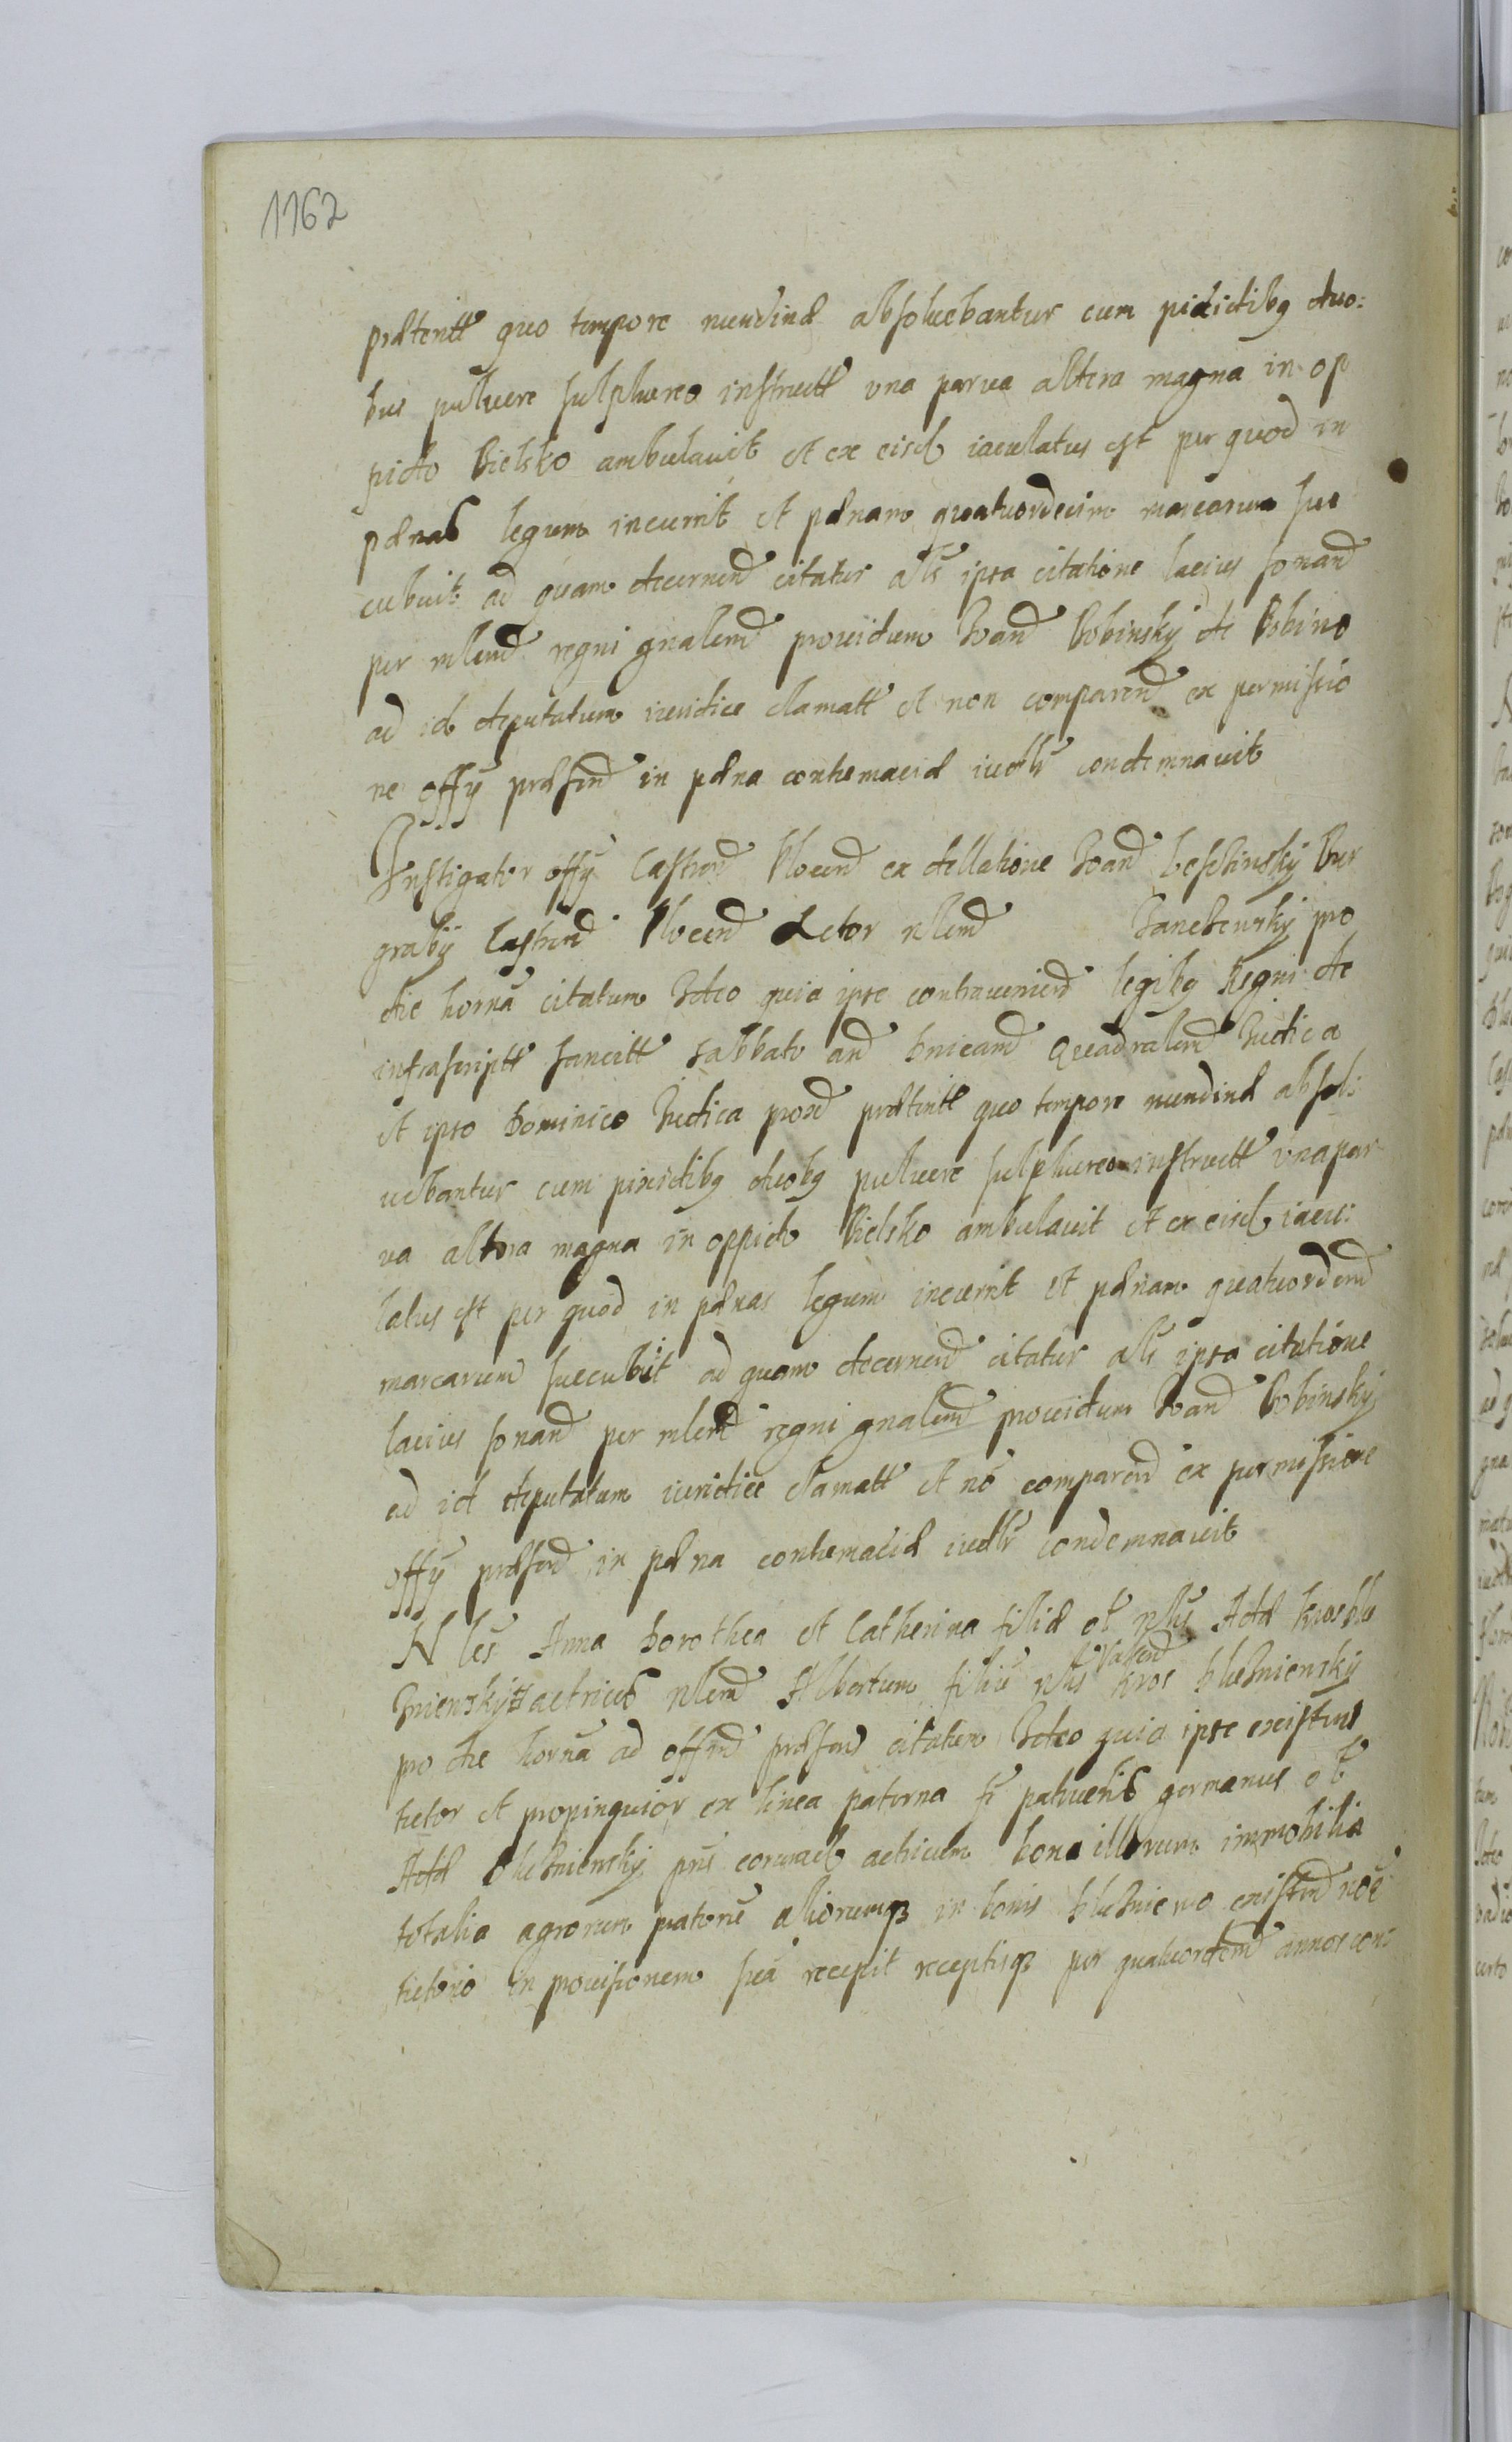 1162
prætentt quo tempore nundinæ absoluebantur cum pixidibg duo:
bus puluere sulphureo instructt vna parua altera magna in op
pido Bielsko ambulauit et ex eisd iaculatus est per quod in
pænas legum incurrit et pænam quatuordecim marcarum suc
cubuit ad quam decernend citatur als ipsa citatione lacius sonand
per mlend regni gnalend prouidum Joand Bobinsky de Bobino
ad id deputatum iuridice clamatt et non comparend ex permissio
ne offy præsend in pæna contumaciæ iudlr condemnauit
Instigator offy Castrend Plocend ex dellatione Joand Leschinsky Bur
graby Castrend Plocend Actor nlend Janchewsky pro
die horna citatum Ideo quia ipse contraueniend legibg Regni de
infrascriptt sancitt Sabbato and dnicand Quadralend Judica
et ipso Dominico Judica proxd prætentt quo tempore nundinæ absol:
uebantur cum pixidibg duobg puluere sulphureo instructt vna par
ua altera magna in oppido Bielsko ambulauit et ex eisd iacu:
latus est per quod in pænas legum incurrit et pænam quatuordend
marcarum succubuit ad quam decernend citatur als ipsa citatione
lacius sonand per mlend regni gnalend prouidum Joand Bobinsky
ad id deputatum iuridice clamatt et nō comparend ex permissione
offy præsend in pæna contumaciæ iudlr condemnauit
Nles Anna Dorothea et Catherina filiæ ol nlis Adæ kros Dlu
Zniewsky actrices nlend Albertum filiū nlis Valend kros Dluzniewsky
pro die horna ad offind præsend citatum Ideo quia ipse existens
tutor et propinquior ex linea paterna fr patruelis germanus ol
Adæ Dluzniewsky pris eorund actricum bona illorum immobilia
totalia agrorum paternē aliorumq in bonis Dluzniewo existend noē
tutorio in prouisionem suā recepit receptisq per quatuordend annos con: